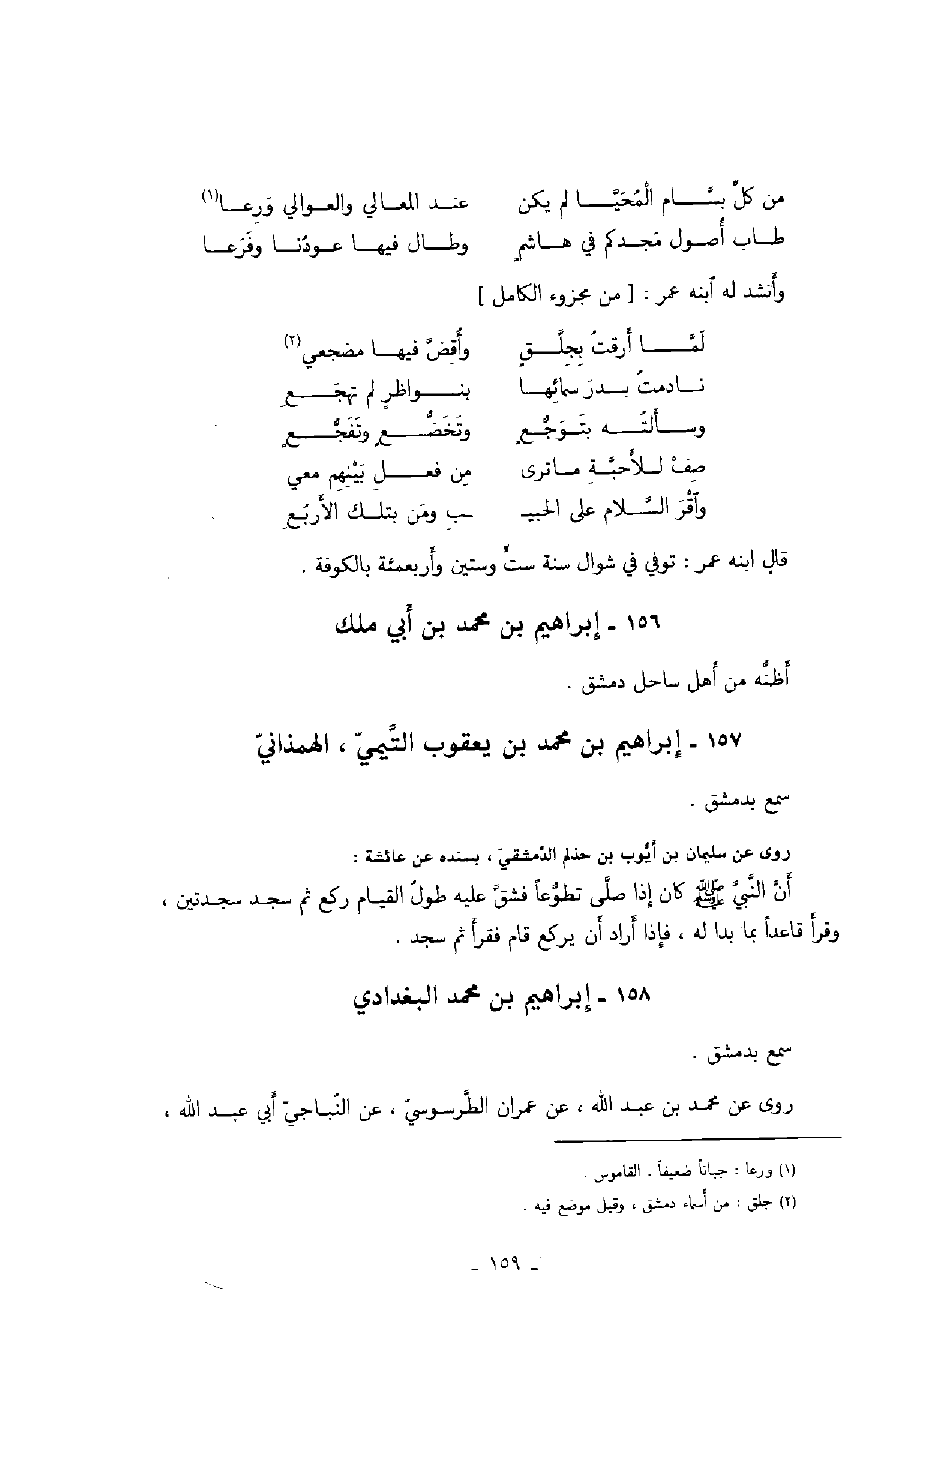 من كلِّ بسَّام الْمُحَيَّا لم يكن عند المعالي والعوالي وَرِعا(١)
طاب أصول مَجدكم في هاشمٍ وطال فيها عودُنا وفَرَعا
وأنشد له ابنه عمر : [ من مجزوء الكامل ]
لَمَّا أرِقتُ بِجلَّقٍ وأُقِضَّ فيها مضجعي(٢)
نادمتُ بدرَ سمائها بنواظرٍ لم تهجَعِ
وسألتُه بتَوَجُّعٍ وتَخَضُّعٍ وتَفَجُّعِ
صِفْ للأحبَّةِ ماترى مِن فعلِ بَيْنِهم معي
وآقْرَ السَّلام على الحبيـ ـبِ ومَن بتلك الأربُعِ
قال ابنه عمر : توفي في شوال سنة ستٍّ وستين وأربعمئة بالكوفة .
١٥٦ - إبراهيم بن محمد بن أبي ملك
أظنُّه من أهل ساحل دمشق .
١٥٧ - إبراهيم بن محمد بن يعقوب التَّيميّ ، الهمذانيّ
سمع بدمشق .
روى عن سليمان بن أيُّوب بن حذلم الدِّمشقيّ ، بسنده عن عائشة :
أنَّ النَّبيَّ ﷺ كان إذا صلَّى تطوُّعاً فشقَّ عليه طولُ القيام ركع ثم سجد سجدتين ،
وقرأ قاعداً بما بدا له ، فإذا أراد أن يركع قام فقرأ ثم سجد .
١٥٨ - إبراهيم بن محمد البغدادي
سمع بدمشق .
روى عن محمد بن عبد الله ، عن عمران الطَّرسوسيّ ، عن النّباجيّ أبي عبد الله ،
(١) ورعا : جباناً ضعيفاً . القاموس .
(٢) جلق : من أسماء دمشق ، وقيل موضع فيه .
- ١٥٩ -